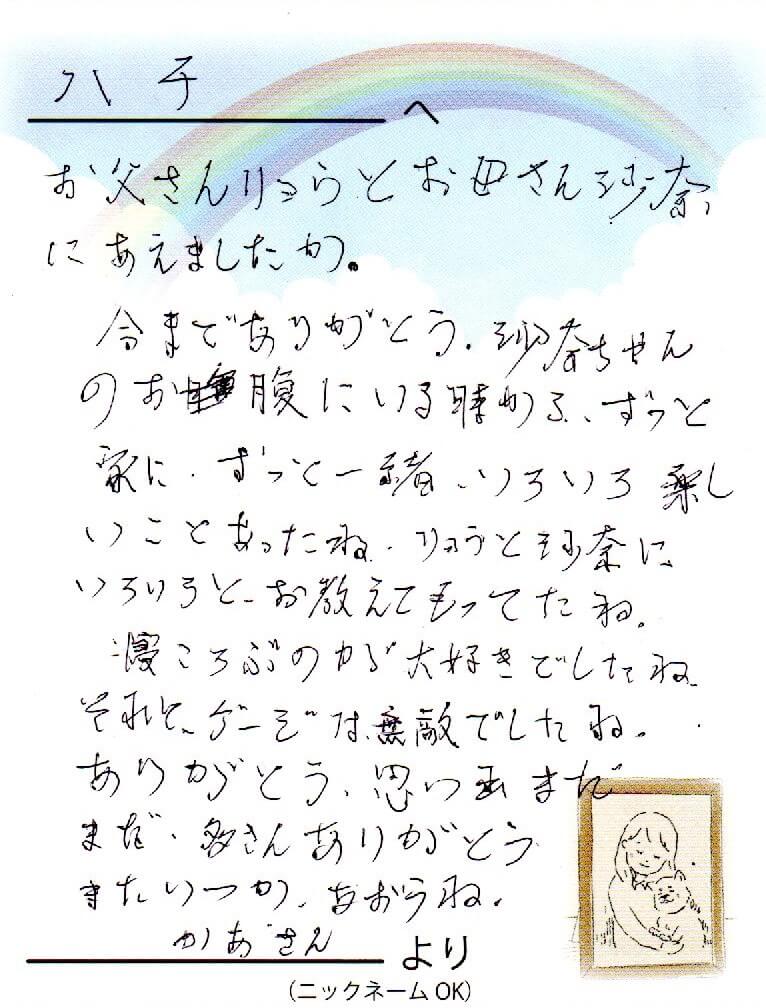 ハチ
へ
お父さんりょうとお母さん沙奈
にあえましたか。
今までありがとう。沙奈ちゃん
のお腹にいる時から、ずっと
家に、ずっと一緒、いろいろ楽し
いことあったね。りょうと沙奈に
いろいろと、お教えてもってたね。
寝ころぶのが大好きでしたね
それと、ゲージは無敵でしたね。
ありがとう、思い出まだ
まだ、多さんありがとう
またいつか、あおうね。
かあさん
より
(ニックネームOK)